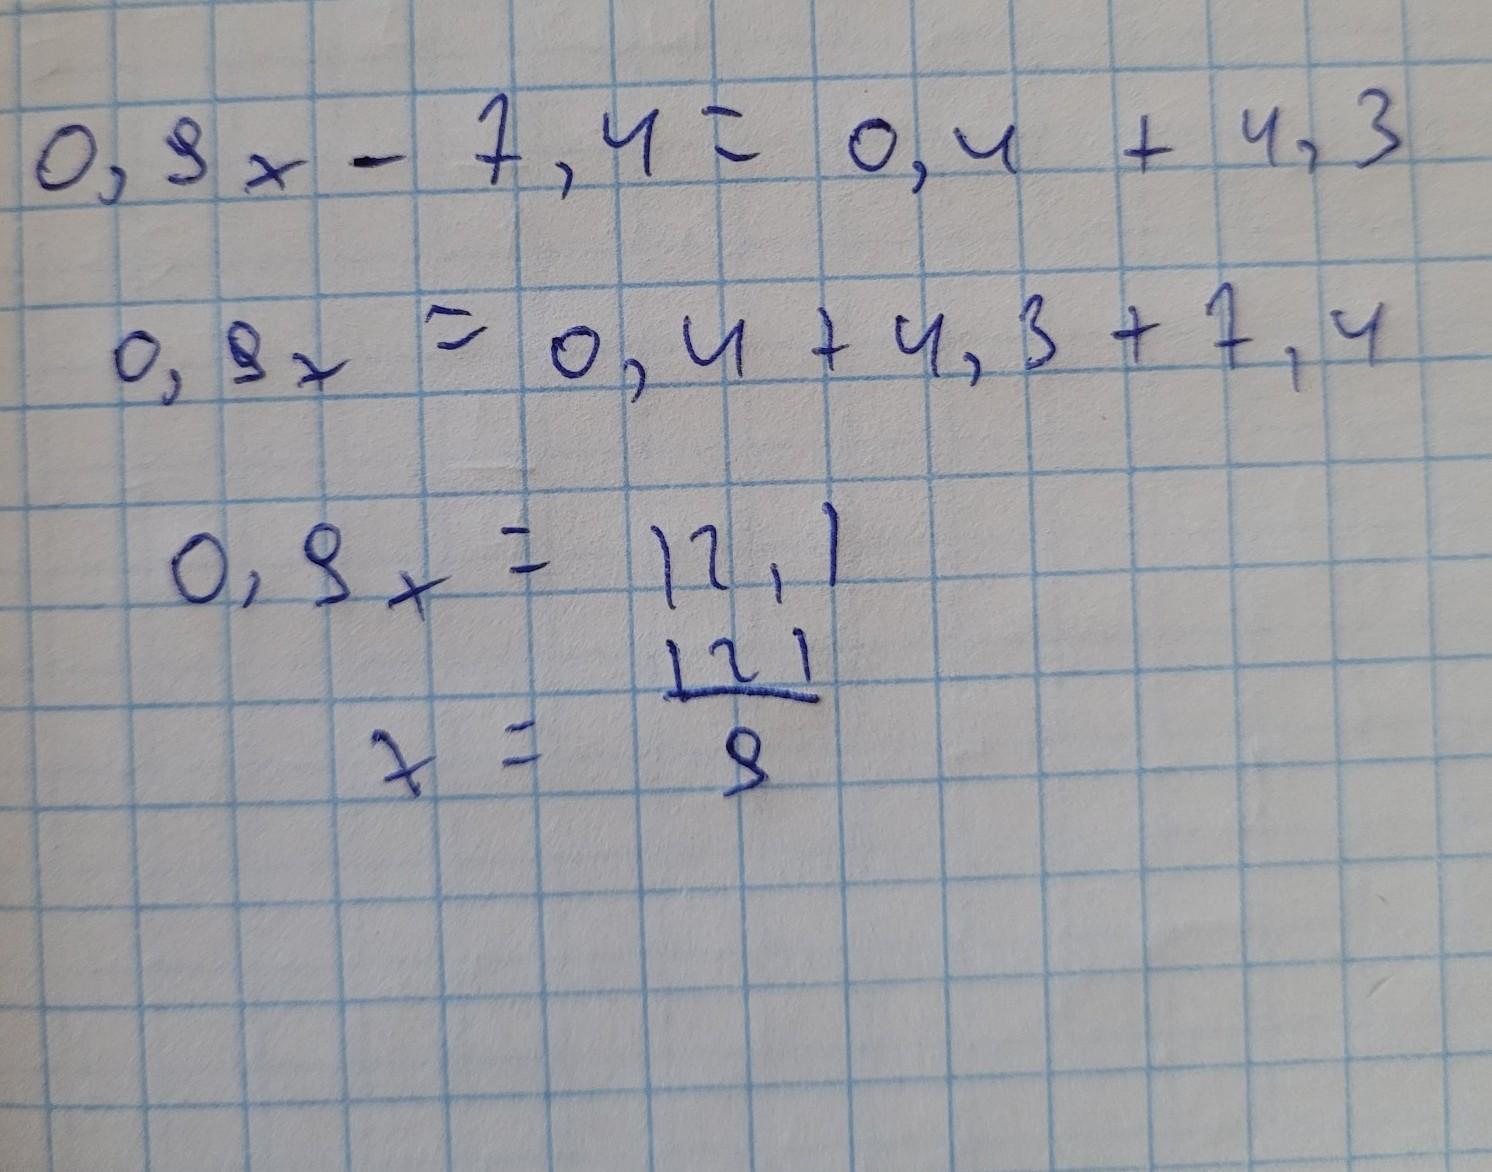 0,9x - 7,4 = 0,4 + 4,3
0,9x = 0,4 + 4,3 + 7,4
0,9x = 12,1
x = 121/9